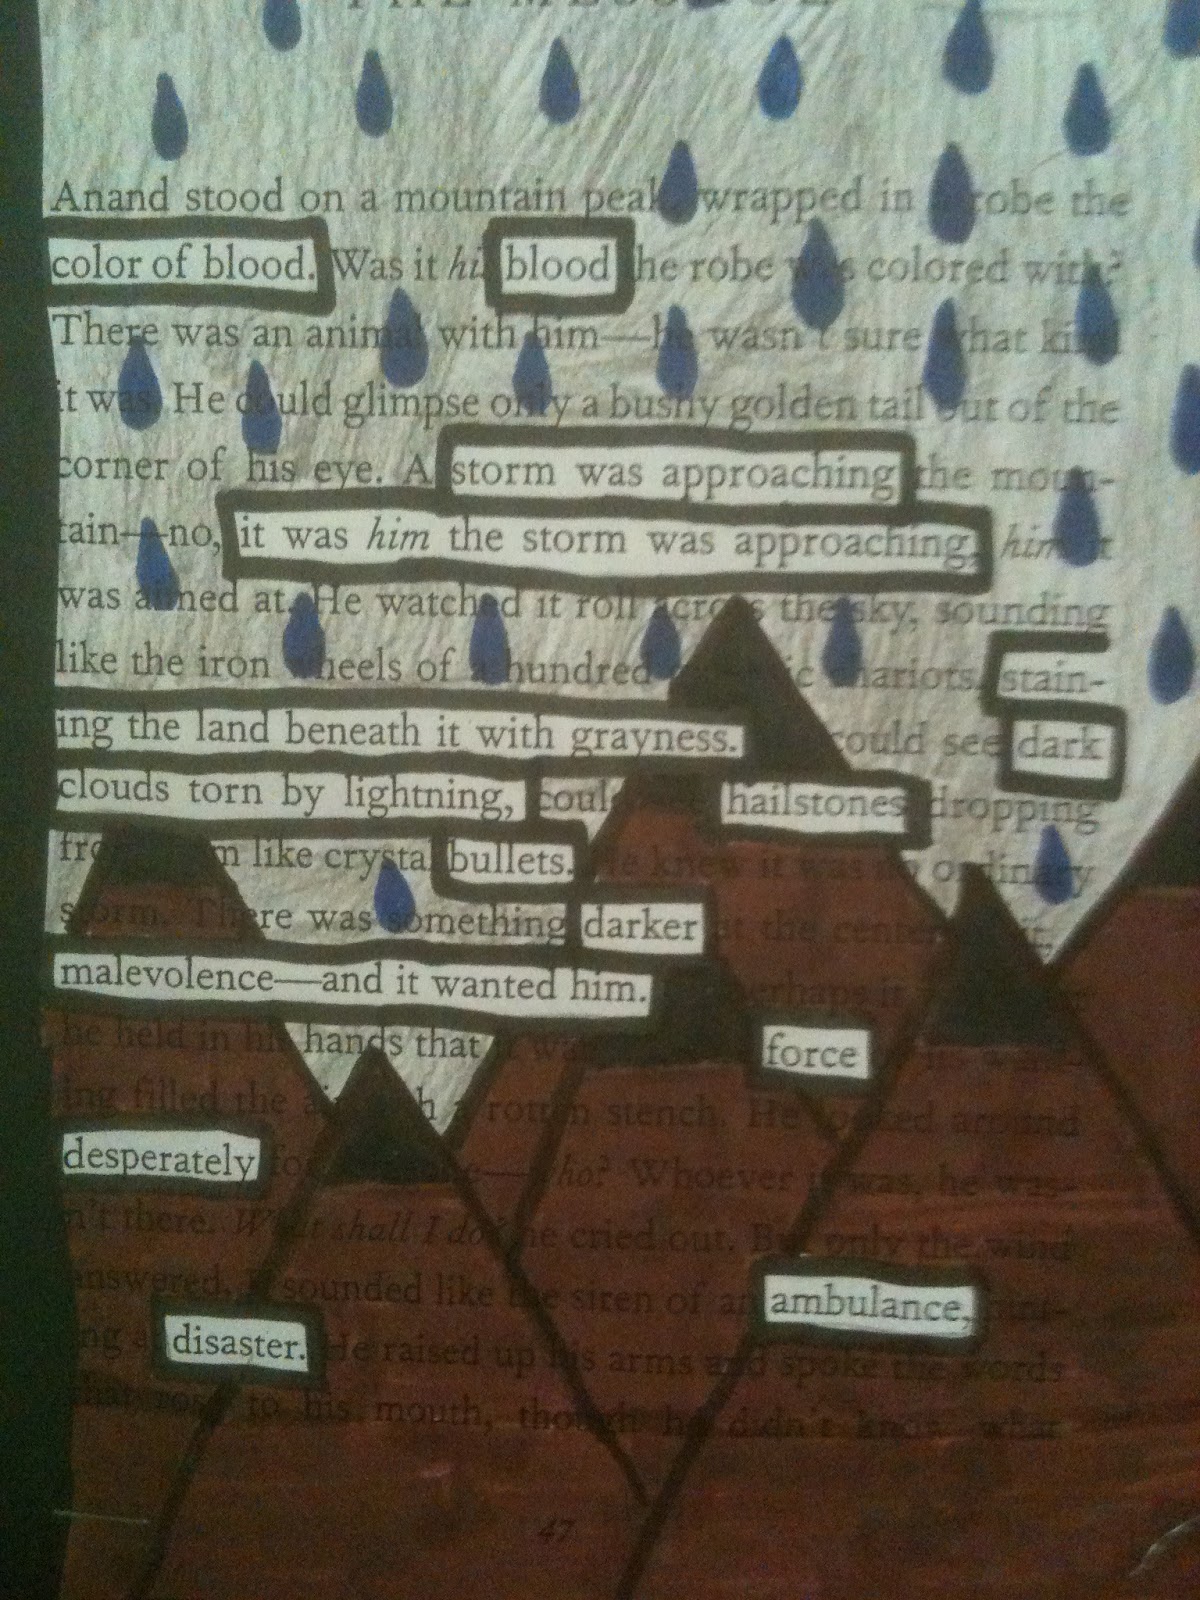 Anand stood on a mountain peak, wrapped in robe the
color of blood. Was it blood he robe colored with?
There was an animal with him—he wasn't sure what kind
it was. He could glimpse only a bushy golden tail out of the
corner of his eye. A storm was approaching the moun-
tain—no, it was him the storm was approaching, him it
was aimed at. He watched it roll across the sky, sounding
like the iron wheels of a hundred chariots, stain-
ing the land beneath it with grayness. could see dark
clouds torn by lightning, could hailstones dropping
like crystal bullets. He knew it was no ordinary
storm. There was something darker at the center it,
malevolence—and it wanted him. perhaps it
he held in his hands that it
ing filled the with a rotten stench. He looked around
desperately for who? Whoever it was, he was-
n't there. What shall I do? he cried out. But only the wind
answered. It sounded like the siren of an ambulance,
disaster. He raised up his arms and spoke the words
that rose to his mouth, though he didn't know what
47
force